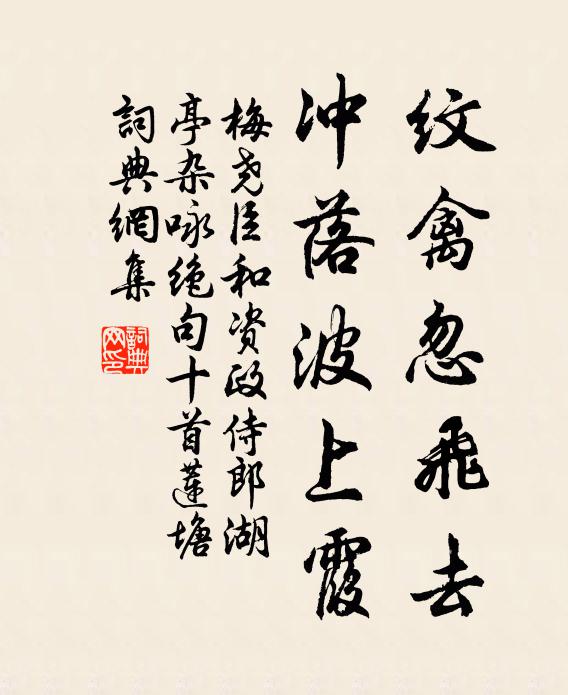 纹禽忽飛去
冲落波上霞
梅尧臣和资政侍郎湖
亭杂咏绝句十首蓮塘
詞典網集
詞典网印